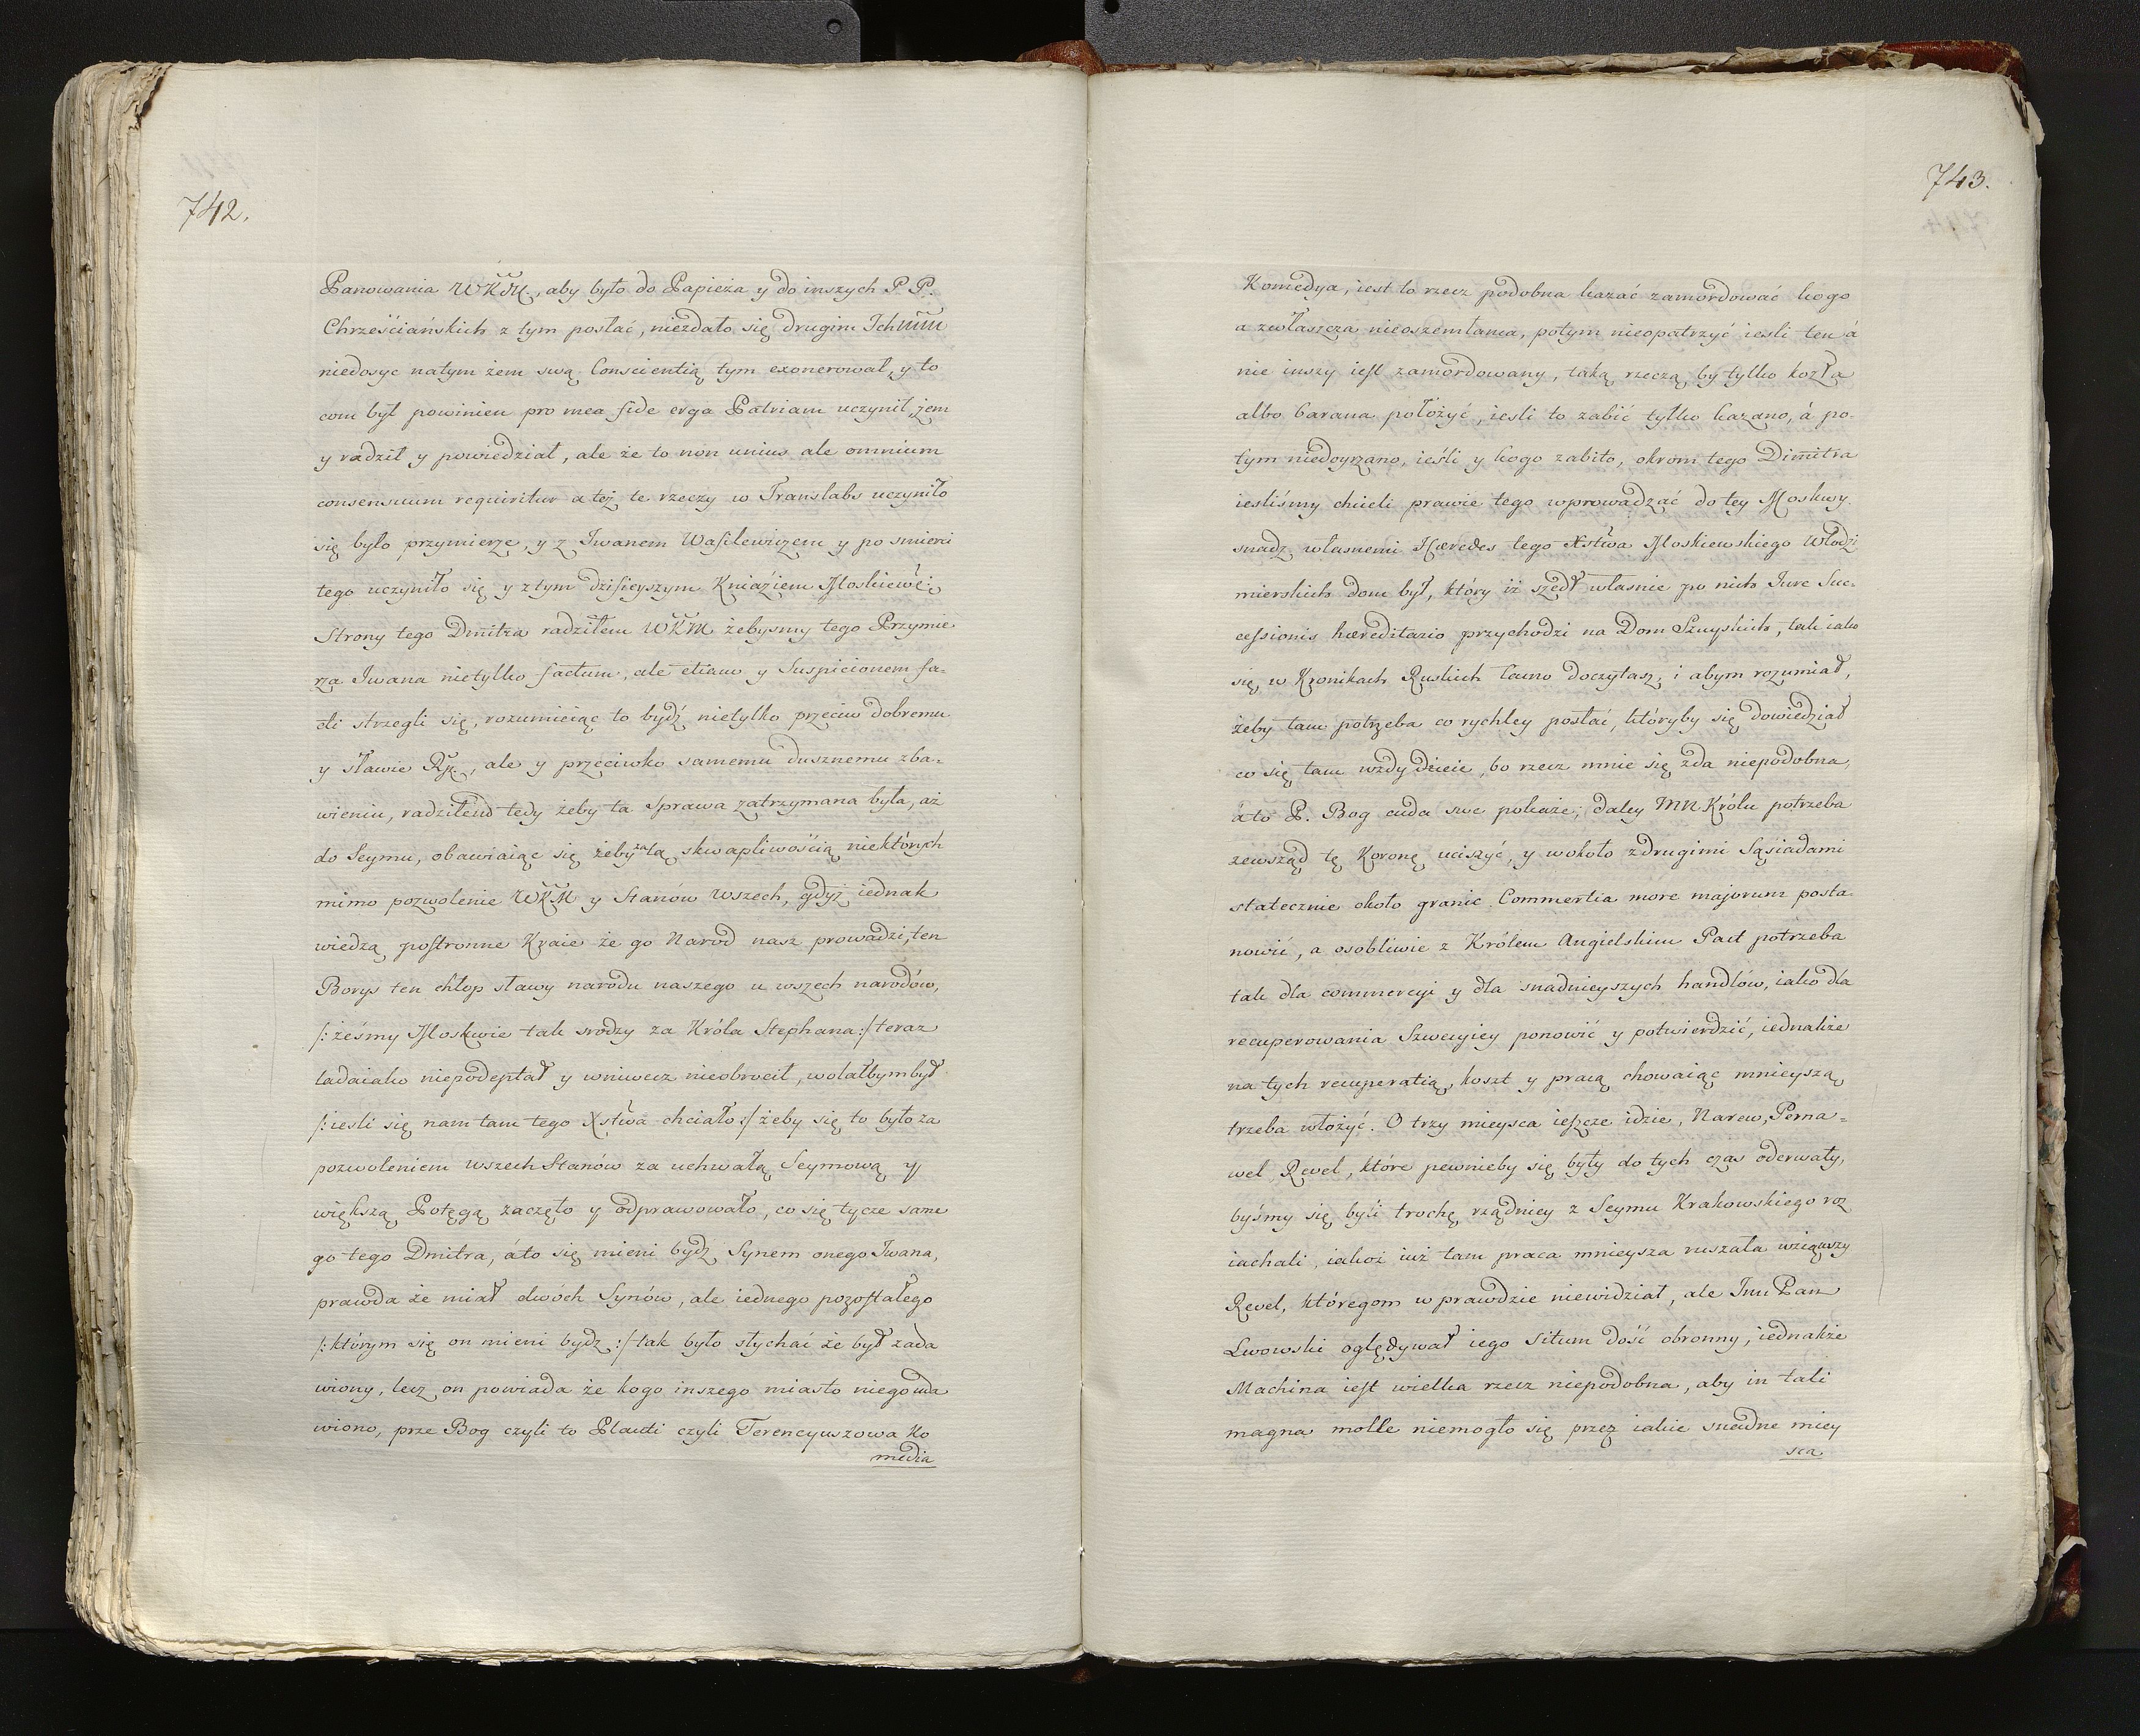 742.
Panowania WKM., aby było do Papieża y do inszych P P.
Chrześciańskich z tym posłać, niezdało się drugim Ich
niedosyc natym żem swą Conscientią tym exonerował, y to
com był powinien pro mea fide erga Patriam uczynił, żem
y radził y powiedział, ale że to non unius ale omnium
consensum requiritur a też te rzeczy w Translabs uczyniło
się było przymierze, y z Iwanem Wasilewiczem y po smierci
tego uczyniło się y z tym dzisieyszym Kniaźiem
Strony tego Dmitra radziłem WKM żebysmy tego Przymie
rza Iwana nietylko factum, ale etiam y Suspicionem fa-
cti strzegli się, rozumieiąc to bydź nietylko przeciw dobremu
y sławie Rp., ale y przeciwko samemu dusznemu zba-
wieniu, tedy żeby ta Sprawa zatrzymana była, aż
do Seymu, obawiaiąc się żeby za tą skwapliwością niektórych
mimo pozwolenie WKM y Stanów wszech, gdyż iednak
wiedzą postronne Kraie że go Narod nasz prowadzi, ten
Borys ten chłop sławy narodu naszego u wszech narodów,
/: żeśmy Moskwie tak srodzy za Króla Stephana :/ teraz
ladaiako niepodeptał y wniwecz nieobrocił, wolałbym był
/: iesli się nam tam tego Xstwa chciało :/ żeby się to było za
pozwoleniem wszech Stanów za uchwałą Seymową y
większą Potęgą zaczęło y odprawowało, co się tycze same
go tego Dmitra, áto się mieni bydz Synem onego Iwana,
prawda że miał dwóch Synów, ale iednego pozostałego
/: którym się on mieni bydz :/ tak było słychać że był zada
wiony, lecz on powiada że kogo inszego miasto niego uda
wiono, prze Bog czyli to Plauti czyli Terencyuszowa Ko
media
743.
Komedya, iest to rzecz podobna kazać zamordować kogo
a zwłaszcza potym nieopatrzyć iesli ten á
nie inszy iest zamordowany, taką rzeczą by tylko kozła
albo barana położyć, iesli to zabić tylko kazano, á po-
tym niedoyrzano, ieśli y kogo zabito, okrom tego Dimitra
iesliśmy chcieli prawie tego wprowadzać do tey Moskwy
snadz własnemi Hæredes tego Xstwa Moskiewskiego Włodzi
mierskich dom był, który iż szedł własnie po nich Iure Suc-
cessionis hæreditario przychodzi na Dom Szuyskich, tak iako
się w Kronikach Ruskich łacno doczytasz, i abym rozumiał,
żeby tam potrzeba co rychley posłać, któryby się dowiedział
co się tam wzdy dzieie, bo rzecz mnie się zda niepodobna,
áto P. Bog cuda swe pokaże; daley MN. Królu potrzeba
zewsząd tę Koronę uciszyć, y wokoło z drugimi Sąsiadami
statecznie około granic Commertia more majorum posta-
nowić, a osobliwie z Królem Angielskim Pact potrzeba
tak dla commercyi y dla snadnieyszych handlów, iako dla
recuperowania Szwecyiey ponowić y potwierdzić, iednakże
na tych recuperatią, koszt y pracą chowaiąc mnieyszą
trzeba włożyć. O trzy mieysca ieszcze idzie, Narew, Perna-
wel, Revel, które pewnieby się były do tych czas oderwały,
byśmy się byli trochę rządniey z Seymu Krakowskiego roz
iachali, iakoż iuż tam praca mnieysza ruszała wziąwszy
Revel, któregom wprawdzie niewidział, ale Imć Pan
Lwowski oględywał iego Situm dość obronny, iednakże
Machina iest wielka rzecz niepodobna, aby in tali
magna molle niemogło się przez iakie snadne miey
sca